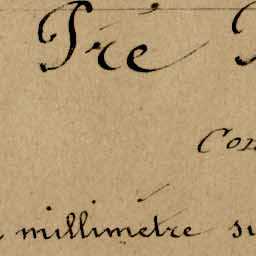 Pré
Con
millimètre su